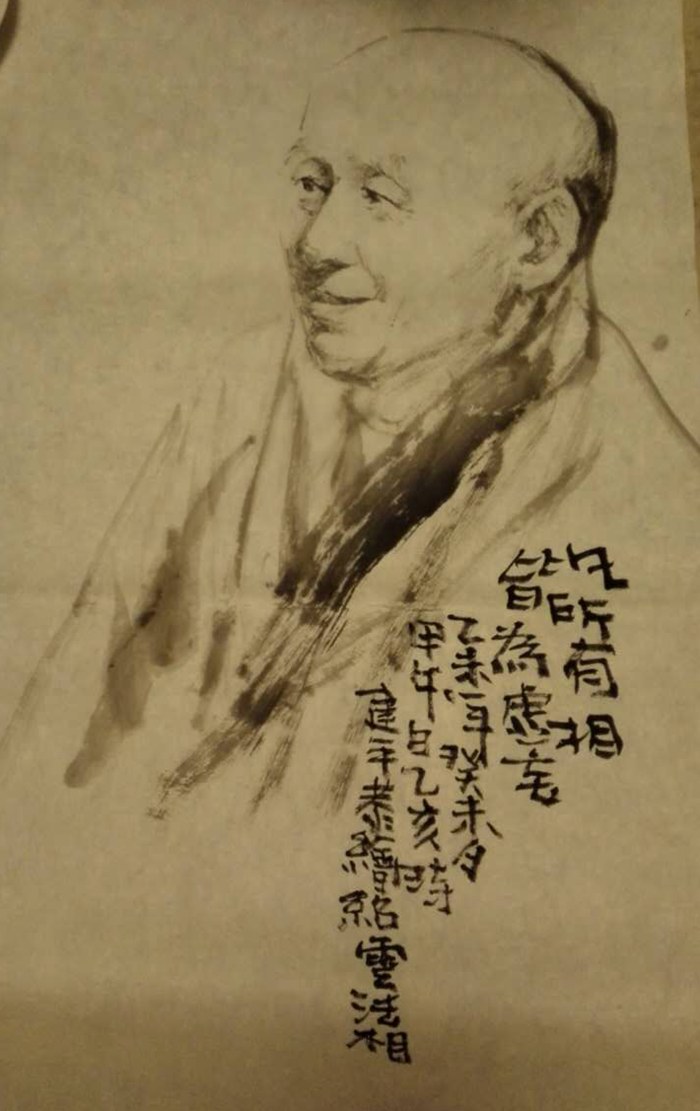 凡所有相
皆為虛妄
乙未年癸未月
甲午日乙亥時
建平恭繪紹雲法相